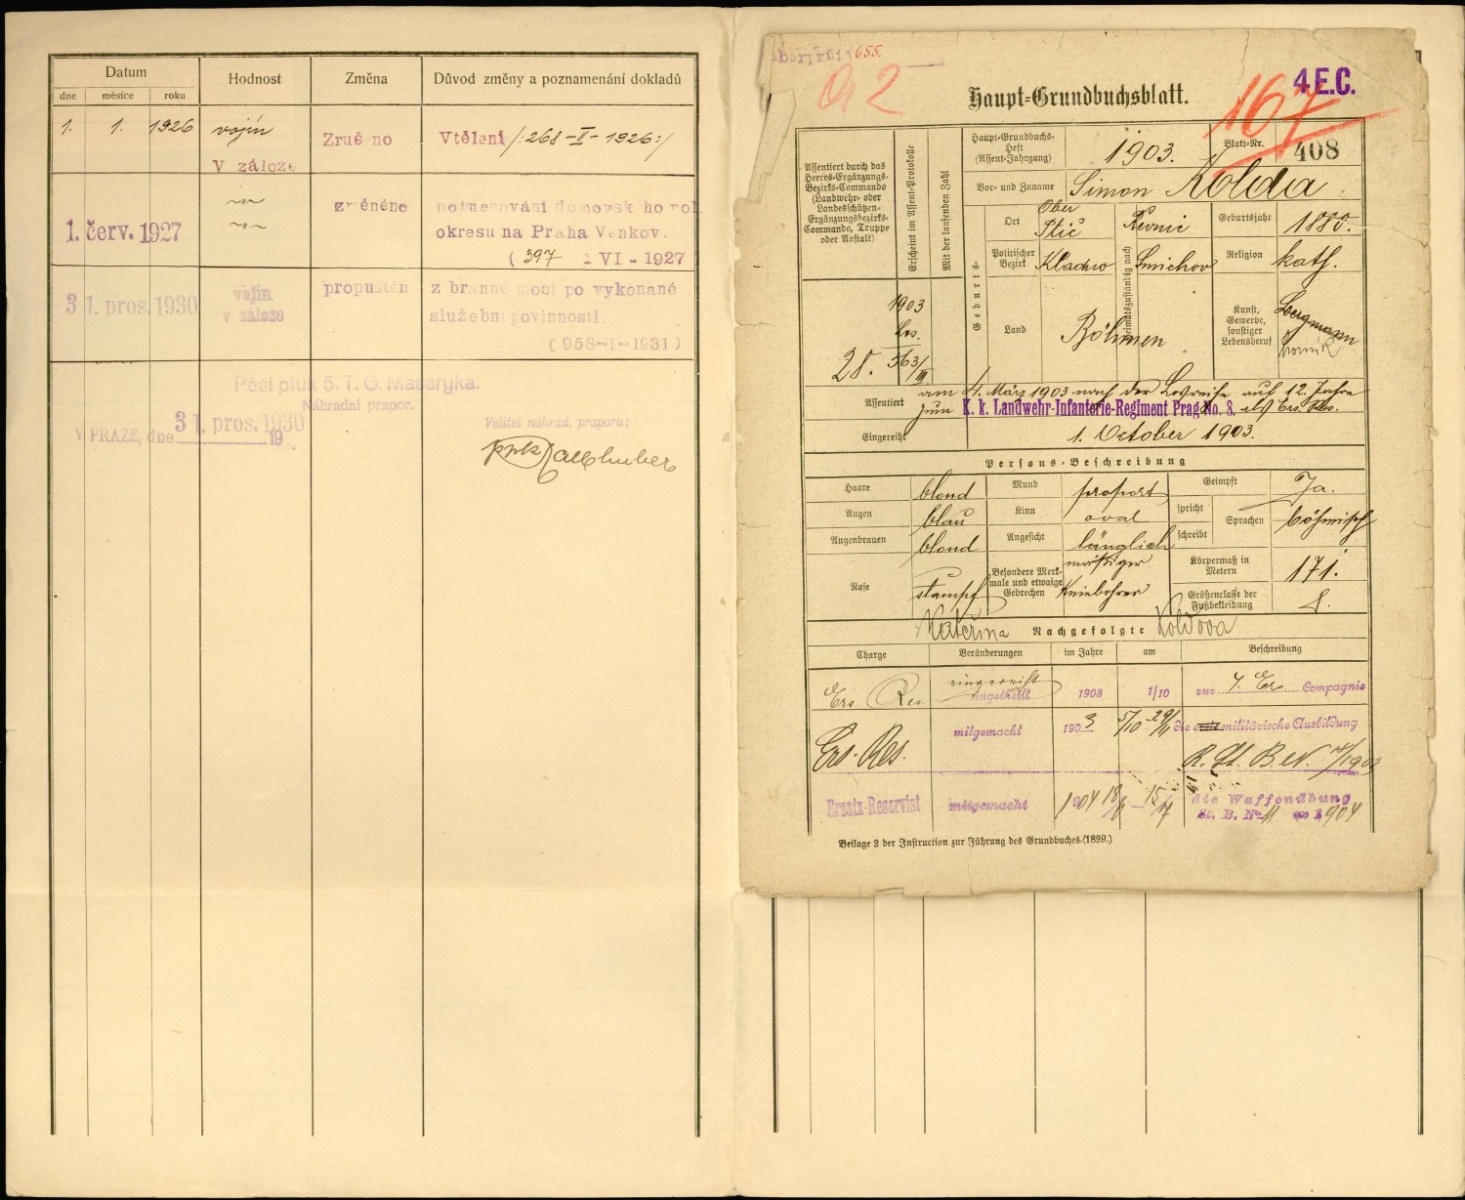 Datum
Hodnost
Změna
Důvod změny a poznamenání dokladů
dne měsíce roku
1. 1. 1926 vojín Zrušeno Vtělení /:268-II-1926:/
V záloze
1. červ. 1927 změněno pojmenování domovského pol.
okresu na Praha Venkov.
( 397 1 VI - 1927
31. pros. 1930 vojín propuštěn z branné moci po vykonané
v záloze služební povinnosti.
( 958-1-1931 )
Pěší pluk 5. T. G. Masaryka.
Náhradní prapor.
V PRAZE, dne 31. pros. 1930 19
Velitel náhrad. praporu:
655.
G 2
167
4 E.C.
Haupt-Grundbuchsblatt.
Assentiert durch das Heeres-Ergänzungs-Bezirks-Commando (Landwehr- oder Landesschützen-Ergänzungsbezirks-Commando, Truppe oder Anstalt)
Erscheint im Assent-Protokolle
Mit der laufenden Zahl
Haupt-Grundbuchs-Heft (Assent-Jahrgang) 1903. Blatt-Nr. 408
Vor- und Zuname Simon Kolda
Geburts-
Ort Ober Ptič
Heimatszuständig nach
Řevnic Geburtsjahr 1880.
Politischer Bezirk Kladno Smichov Religion kath.
Land Böhmen Kunst, Gewerbe, sonstiger Lebensberuf Bergmann
horník
28. 1903
Ers.
563/III.
Assentiert am 4. März 1903 nach der Losreihe auf 12 Jahre
zum K. k. Landwehr-Infanterie-Regiment Prag No. 8. als Ers. Res.
Eingereiht 1. October 1903.
Persons-Beschreibung
Haare blond Mund proport Geimpft Ja.
Augen blau Kinn oval spricht Sprachen böhmisch
Augenbrauen blond Angesicht länglich schreibt
Nase stumpf Besondere Merkmale und etwaige Gebrechen mäßiger Kniebohrer Körpermaß in Metern 171.
Größenclasse der Fußbekleidung 8.
Kateřina Nachgefolgte Koldova
Charge Veränderungen im Jahre am Beschreibung
Ers. Res. eingereiht 1903 1/10 zur 7. Ers Compagnie
Ers. Res. mitgemacht 1903 5/10 - 29/11 die militärische Ausbildung
Ersatz-Reservist mitgemacht 1904 18/6 - 15/7 die Waffenübung
St. B. No. 11 ex 1904
Beilage 2 der Instruction zur Führung des Grundbuches. (1899.)